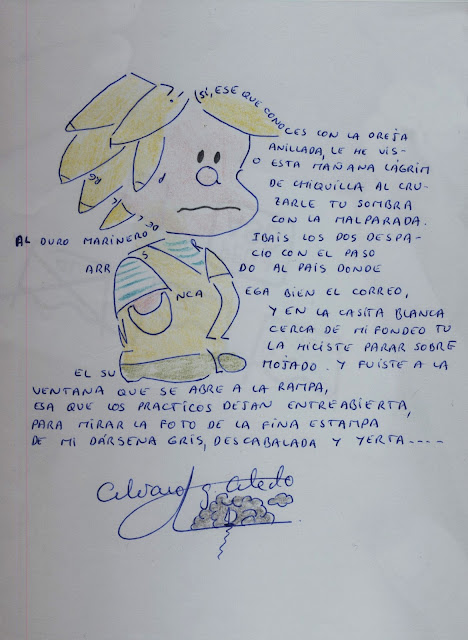 (SÍ, ESE QUE CONOCES CON LA OREJA
ANILLADA, LE HE VIS-
O ESTA MAÑANA LÁGRIM
DE CHIQUILLA AL CRU-
ZARLE TU SOMBRA
CON LA MALPARADA.
AL DURO MARINERO
IBAIS LOS DOS DESPA-
CIO CON EL PASO
ARR S DO AL PAÍS DONDE
NCA EGA BIEN EL CORREO,
Y EN LA CASITA BLANCA
CERCA DE MI FONDEO TU
LA HICISTE PARAR SOBRE
EL SU MOJADO. Y FUISTE A LA
VENTANA QUE SE ABRE A LA RAMPA,
ESA QUE LOS PRACTICOS DEJAN ENTREABIERTA,
PARA MIRAR LA FOTO DE LA FINA ESTAMPA
DE MI DÁRSENA GRIS, DESCABALADA Y YERTA----